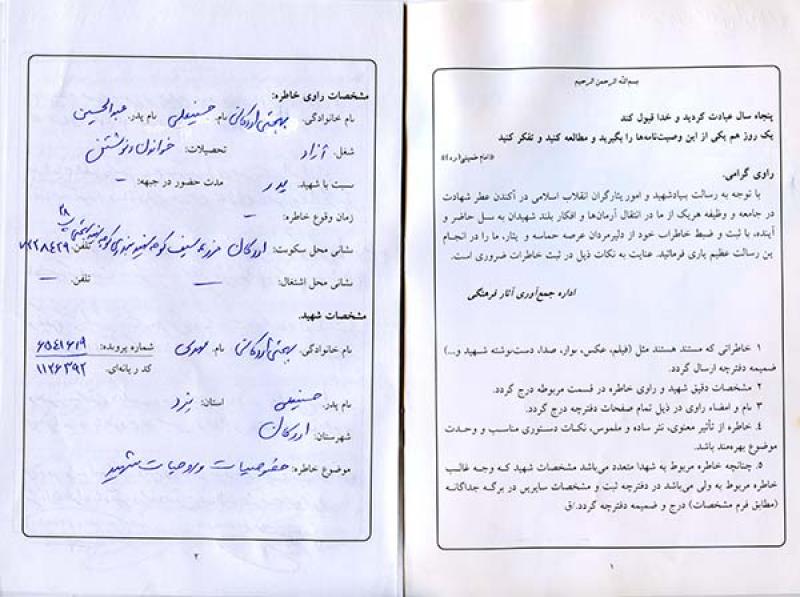 بسم‌الله الرحمن الرحیم
پنجاه سال عبادت کردید و خدا قبول کند
یک روز هم یکی از این وصیت‌نامه‌ها را بگیرید و مطالعه کنید و تفکر کنید
«امام خمینی(ره)»
راوی گرامی.
با توجه به رسالت بنیادشهید و امور ایثارگران انقلاب اسلامی در آکندن عطر شهادت
در جامعه و وظیفه هریک از ما در انتقال آرمان‌ها و افکار بلند شهیدان به نسل حاضر و
آینده، با ثبت و ضبط خاطرات خود از دلیرمردان عرصه حماسه و ایثار، ما را در انجام
این رسالت عظیم یاری فرمائید. عنایت به نکات ذیل در ثبت خاطرات ضروری است.
اداره جمع‌آوری آثار فرهنگی
۱ خاطراتی که مستند هستند مثل (فیلم، عکس، نوار، صدا، دست‌نوشته شهید و...)
ضمیمه دفترچه ارسال گردد.
۲ مشخصات دقیق شهید و راوی خاطره در قسمت مربوطه درج گردد.
۳ نام و امضاء راوی در ذیل تمام صفحات دفترچه درج گردد.
۴ خاطره از تأثیر معنوی، نثر ساده و ملموس، نکات دستوری مناسب و وحدت
موضوع بهره‌مند باشد.
۵ چنانچه خاطره مربوط به شهدا متعدد می‌باشد مشخصات شهید که وجه غالب
خاطره مربوط به ولی می‌باشد در دفترچه ثبت و مشخصات سایرین در برگه جداگانه
(مطابق فرم مشخصات) درج و ضمیمه دفترچه گردد./ق
۱
مشخصات راوی خاطره:
نام خانوادگی: بهجتی اردکانی نام: حسینعلی نام پدر: عبدالحسین
شغل: آزاد تحصیلات: خواندن و نوشتن
نسبت با شهید: پدر مدت حضور در جبهه: –
زمان وقوع خاطره: –
نشانی محل سکونت: اردکان مزرعه سیف کوچه شهید تلفن: ۷۲۳۸۴۲۹
نشانی محل اشتغال: — تلفن: —
مشخصات شهید:
نام خانوادگی: بهجتی اردکانی نام: مهدی شماره پرونده: ۶۵۴۱۶۱۹
کد رایانه‌ای: ۱۱۲۶۳۹۲
نام پدر: حسینعلی استان: یزد
شهرستان: اردکان
موضوع خاطره: خصوصیات و روحیات شهید
۲